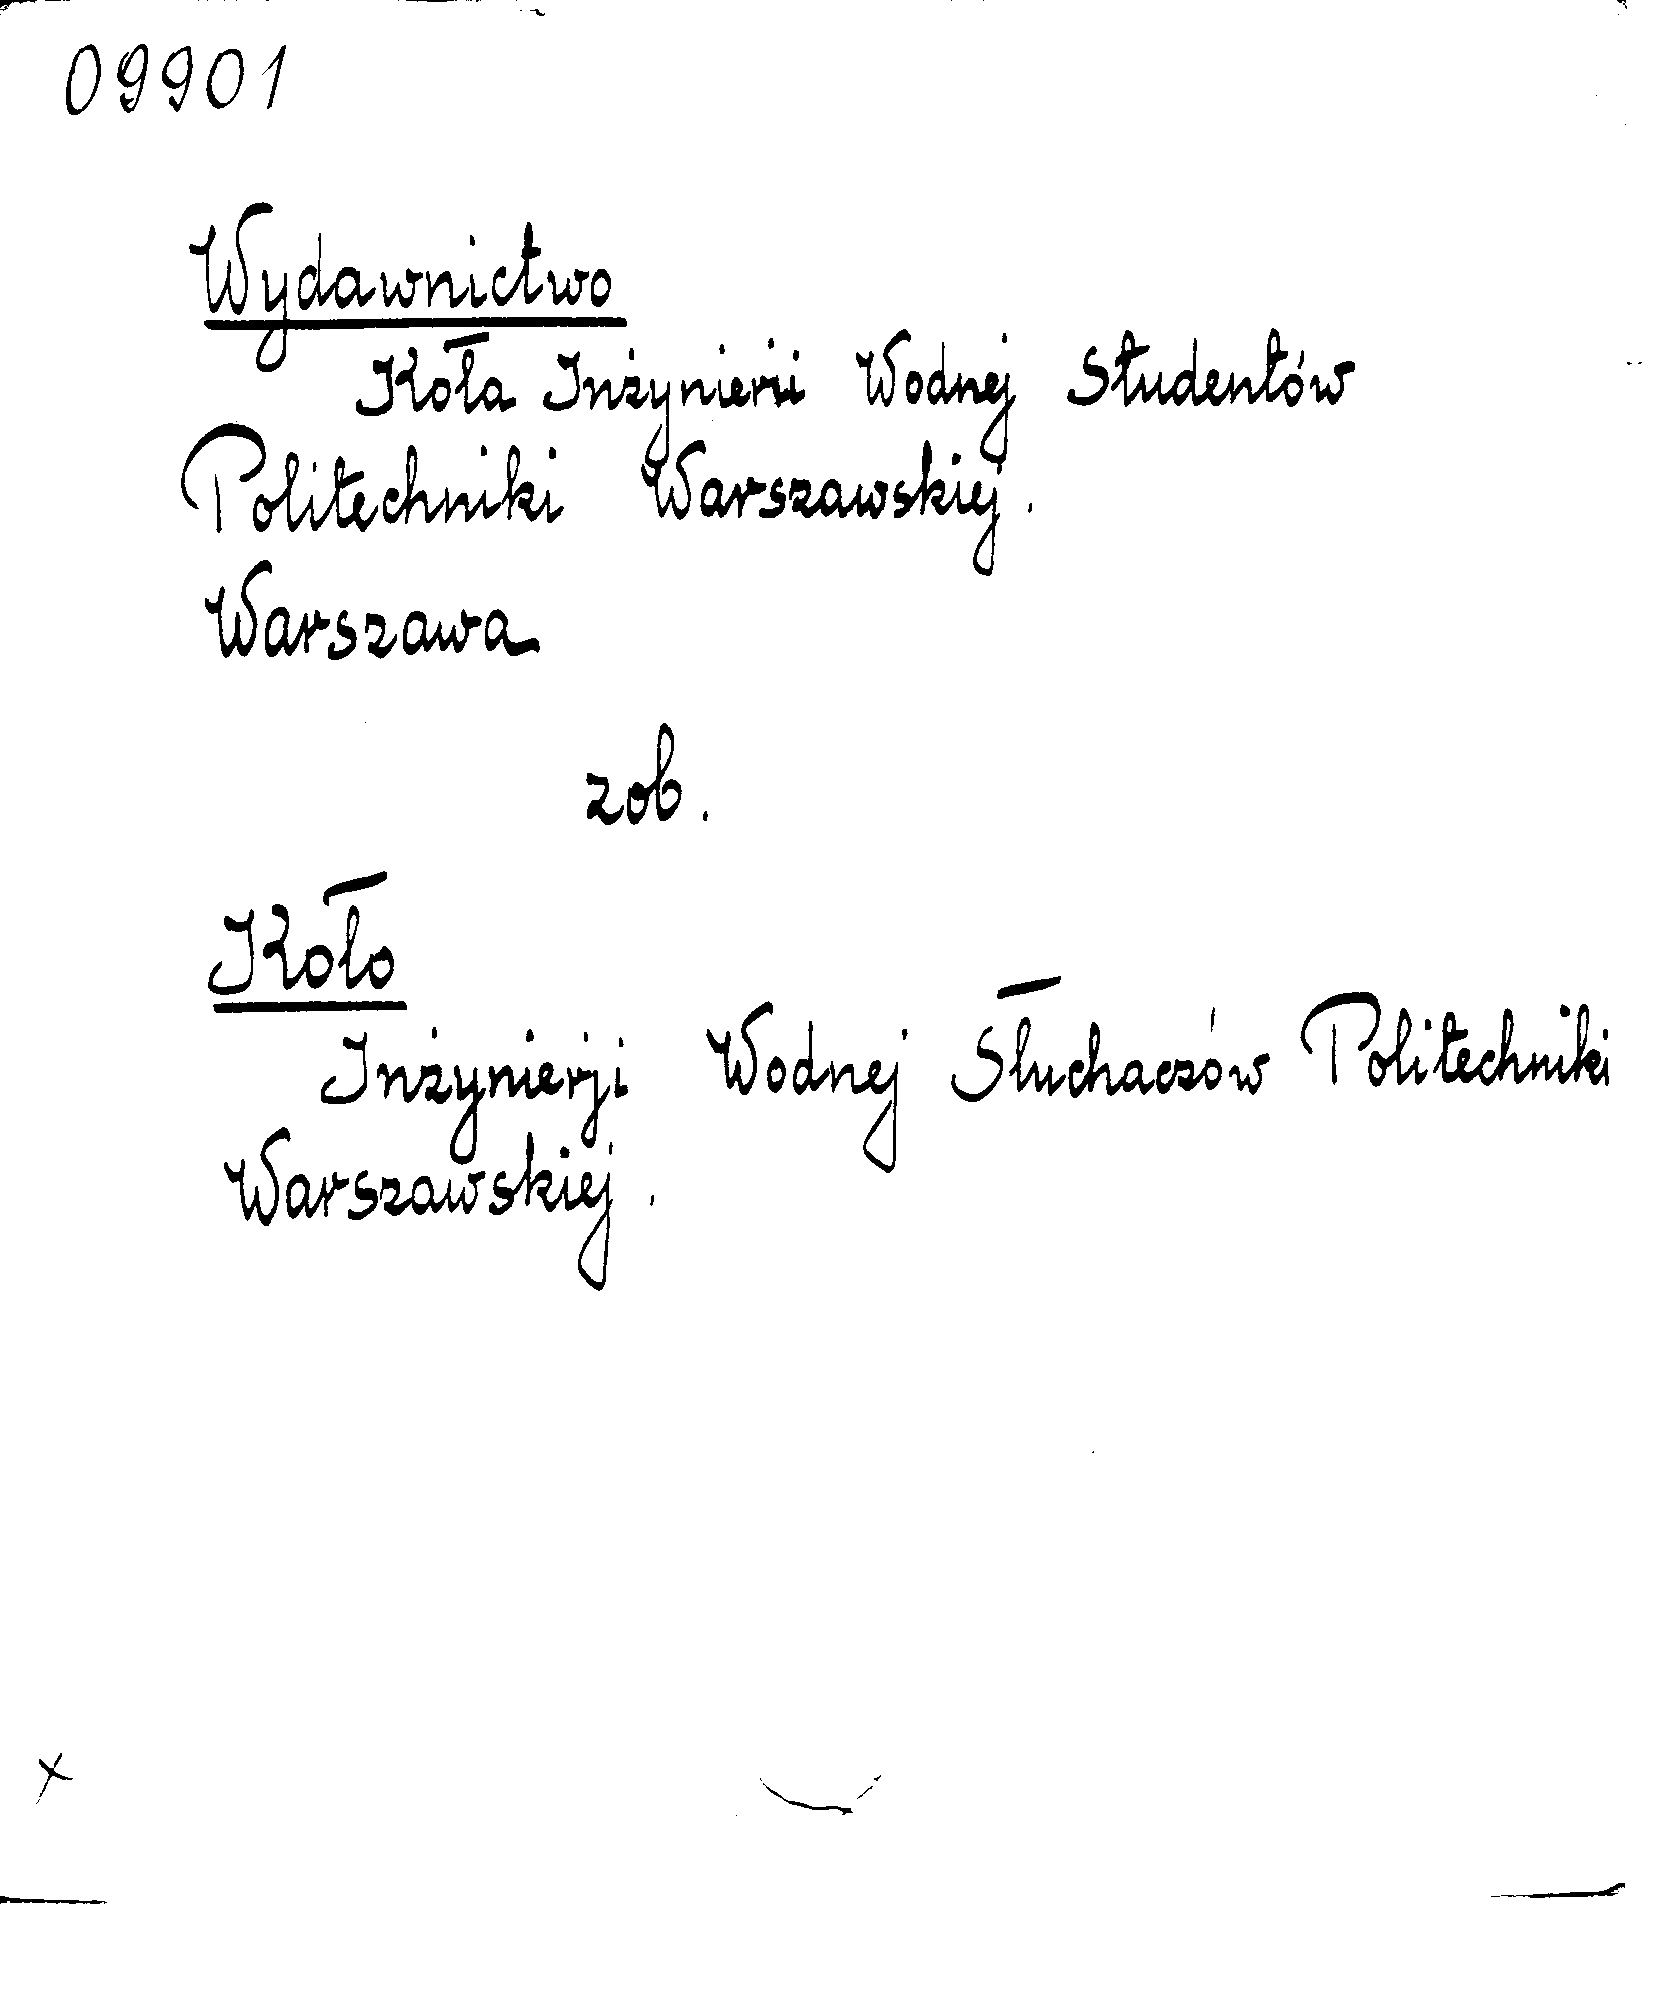 09901
Wydawnictwo
Koła Inżynierii Wodnej Studentów
Politechniki Warszawskiej.
Warszawa
zob.
Koło
Inżynierji Wodnej Słuchaczów Politechniki
Warszawskiej.
x